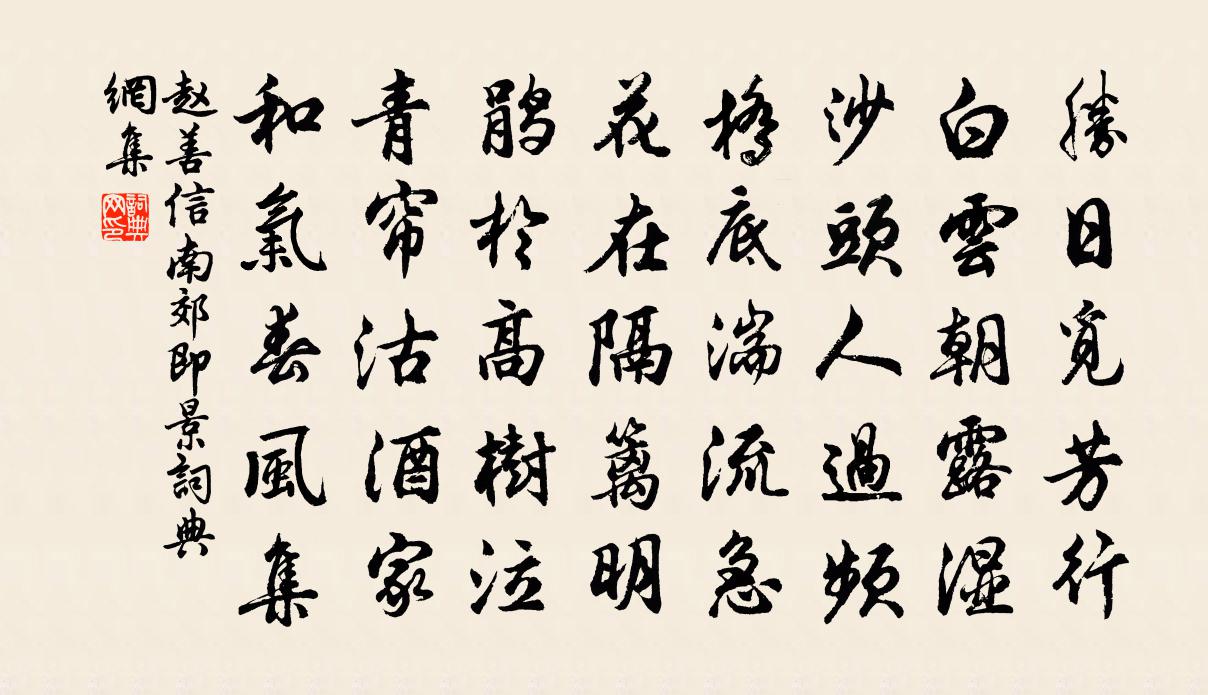 勝日覓芳行
白雲朝露濕
沙頭人過頻
橋底湍流急
花在隔篱明
鹃於高樹泣
青帘沽酒家
和氣春風集
赵善信南郊即景詞典
網集
詞典網印